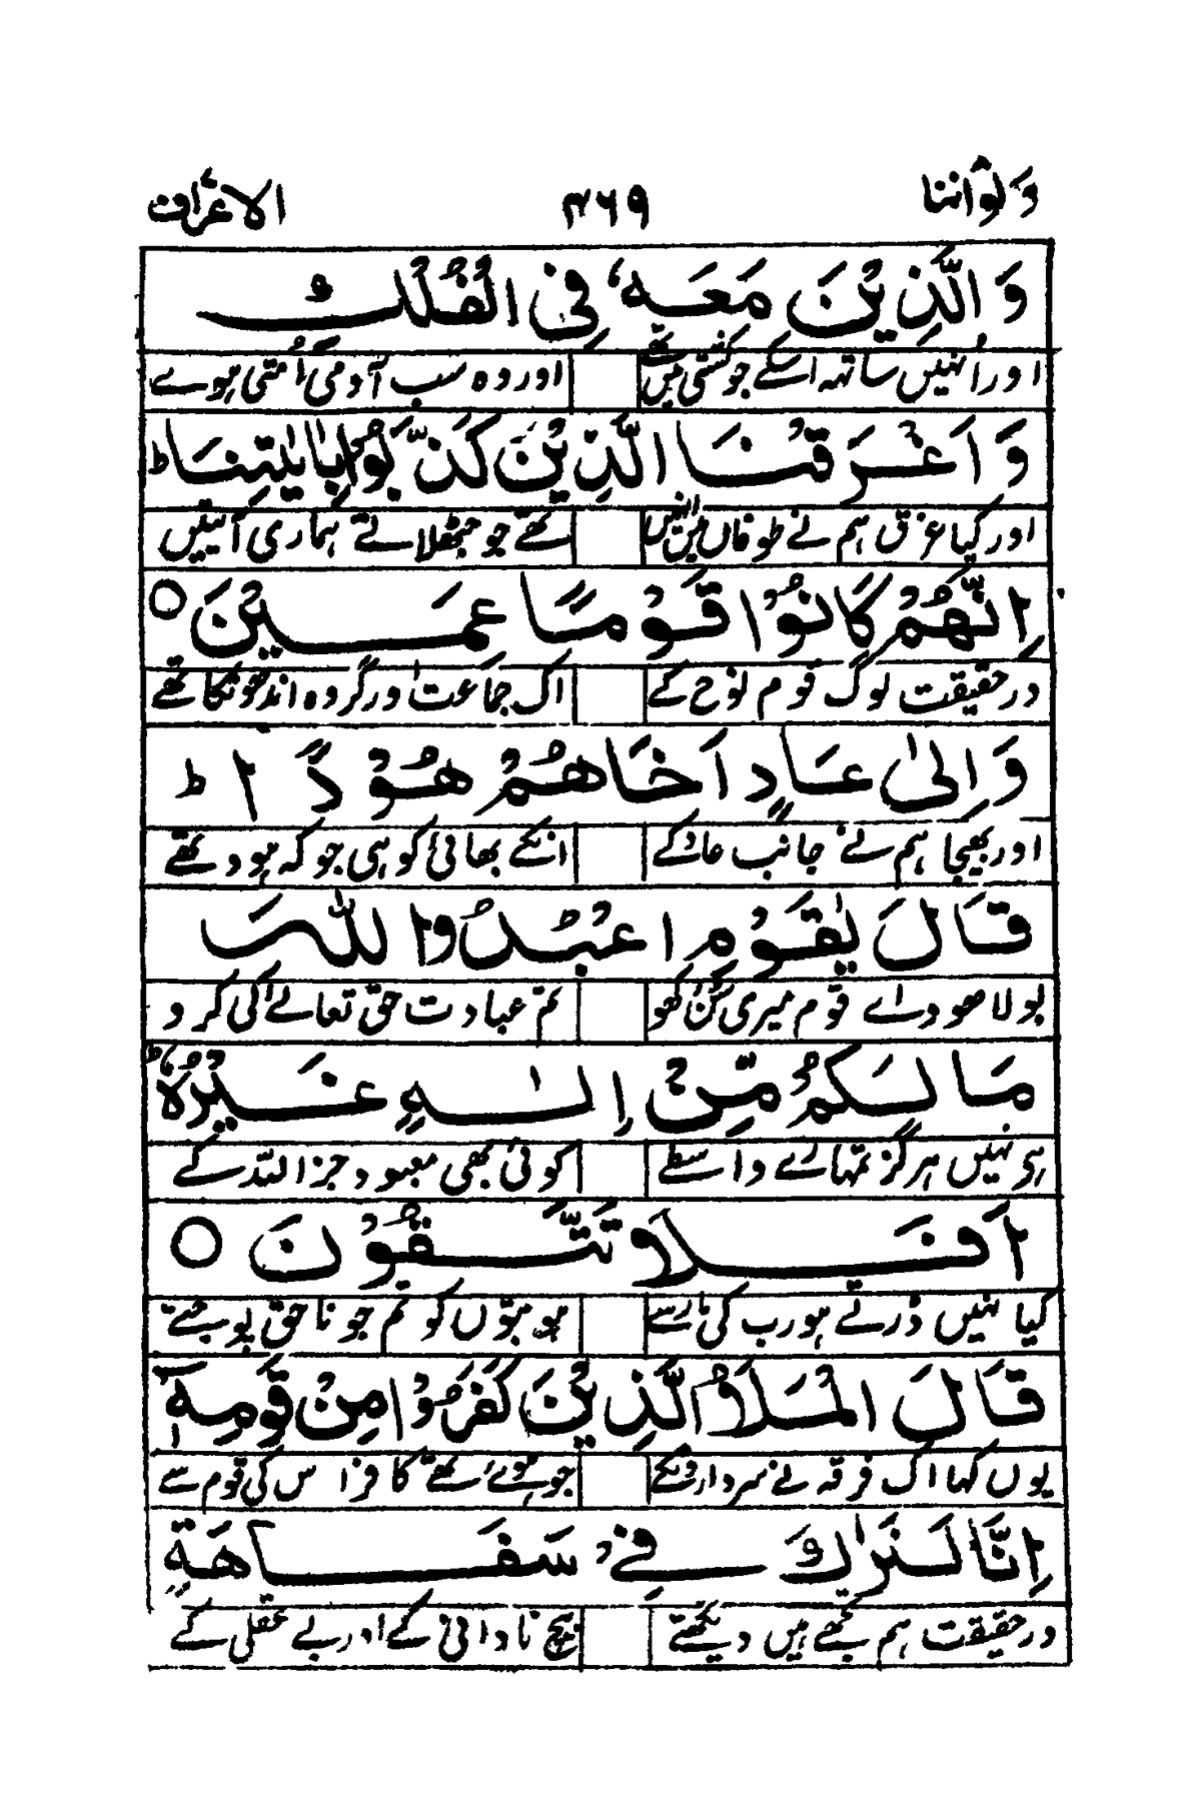 ولو اننا ۳۶۹ الاعراف
وَالَّذِيْنَ مَعَهٗ فِى الْفُلْكِ وَ
اور انہیں ساتھ اسکے جو کشتی میں تھے اور وہ سب آدمی اُمتی ہوے
وَاَغْرَقْنَا الَّذِيْنَ كَذَّبُوْا بِاٰيٰتِنَا ط
اور کیا غرق ہم نے طوفاں میں انہیں تھے جو جھٹلاتے ہماری آیتیں
اِنَّهُمْ كَانُوْا قَوْمًا عَمِيْنَ ○
درحقیقت لوگ قوم نوح کے اک جماعت اور گروہ اندھونکا تھے
وَاِلٰى عَادٍ اَخَاهُمْ هُوْدًا ط
اور بھیجا ہم نے جانب عاد کے انکے بھائی کو ہی جو کہ ہود تھے
قَالَ يٰقَوْمِ اعْبُدُوا اللّٰهَ
بولا ھود اے قوم میری سُن کھو تم عبادت حق تعالےٰ کی کرو
مَا لَكُمْ مِّنْ اِلٰهٍ غَيْرُهٗ ط
ہی نہیں ہرگز تمہارے واسطے کوئی بھی معبود جز اللہ کے
اَفَلَا تَتَّقُوْنَ ○
کیا نہیں ڈرتے ہو رب کی مار سے ہو بتوں کو تم جو ناحق پوجتے
قَالَ الْمَلَاُ الَّذِيْنَ كَفَرُوْا مِنْ قَوْمِهٖٓ
یوں کہا اک فرقہ نے سردارونکے جو ہوئے تھے کافر اس کی قوم سے
اِنَّا لَنَرٰىكَ فِيْ سَفَاهَةٍ وَّ
درحقیقت ہم تجھے ہیں دیکھتے بیچ نادانی کے اور بے عقلی کے